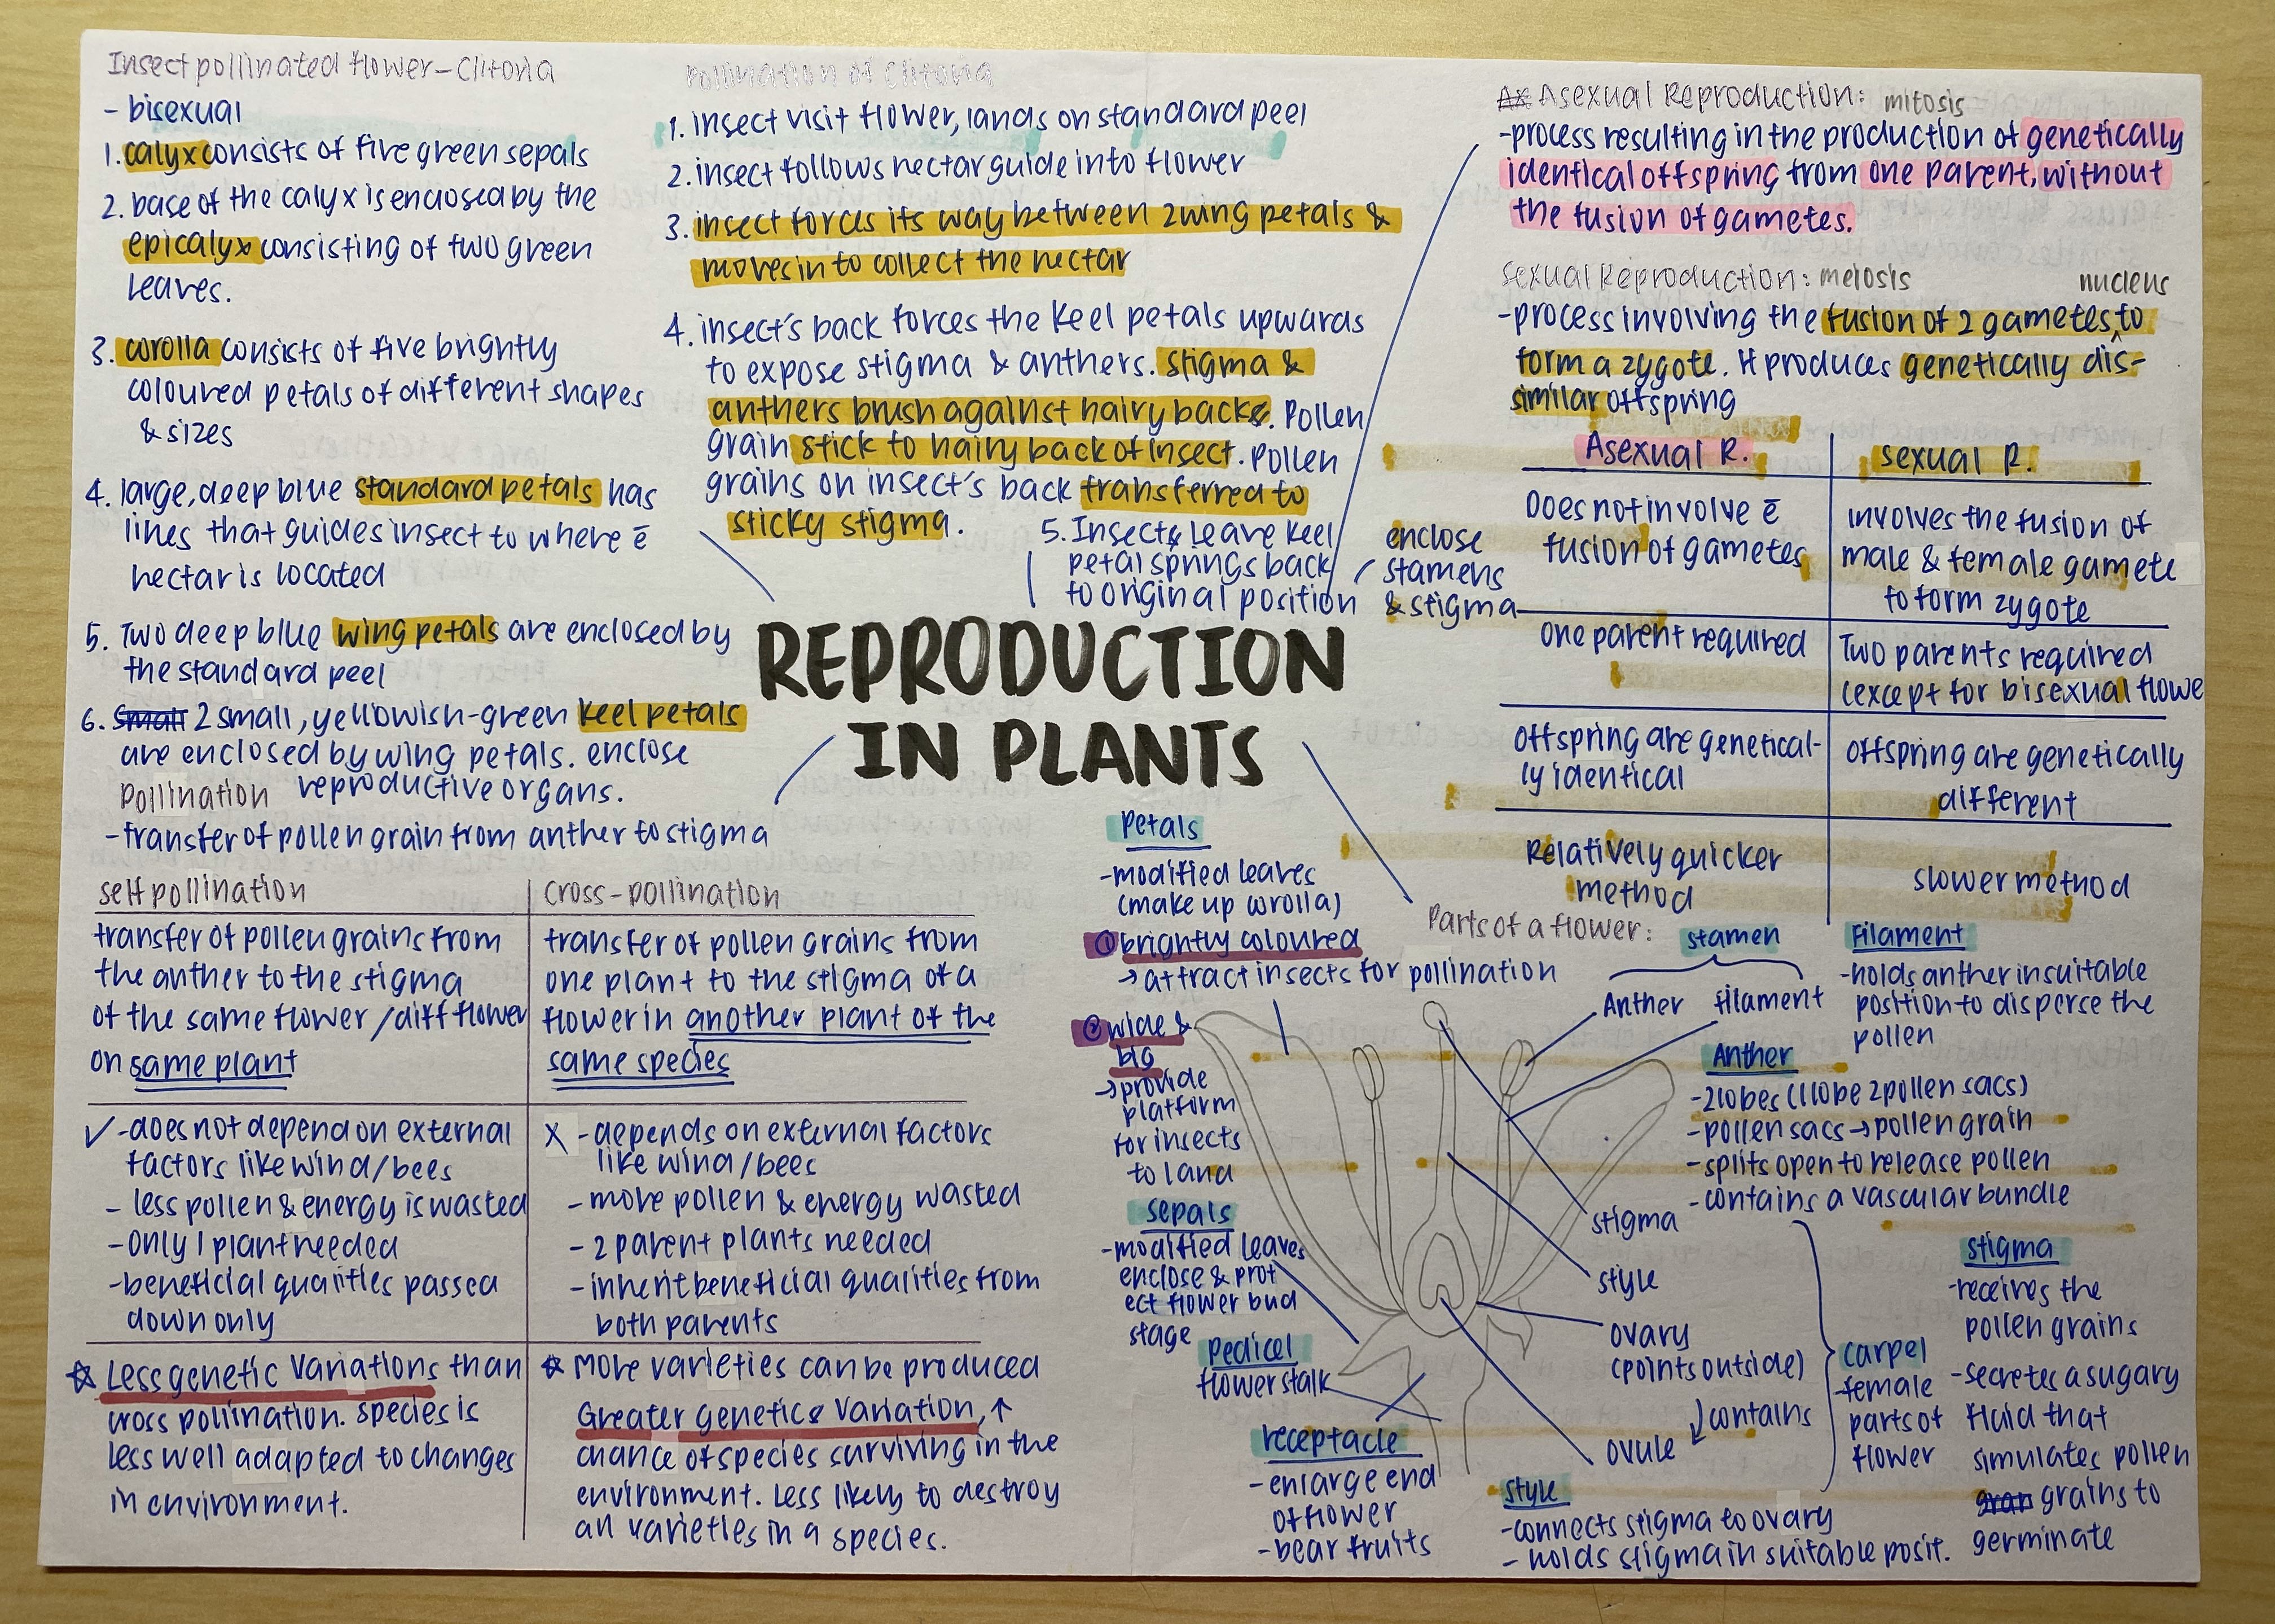 Insect pollinated flower - Clitoria
- bisexual
1. calyx consists of five green sepals
2. base of the calyx is enclosed by the
epicalyx consisting of two green
leaves.
3. corolla consists of five brightly
coloured petals of different shapes
& sizes
4. large, deep blue standard petals has
lines that guides insect to where ē
nectar is located
5. Two deep blue wing petals are enclosed by
the standard peel
6. Small 2 small, yellowish-green keel petals
are enclosed by wing petals. enclose
reproductive organs.
Pollination of Clitoria
1. insect visit flower, lands on standard peel
2. insect follows nectar guide into flower
3. insect forces its way between 2 wing petals &
moves in to collect the nectar
4. insect's back forces the keel petals upwards
to expose stigma & anthers. stigma &
anthers brush against hairy back. Pollen
grain stick to hairy back of insect. Pollen
grains on insect's back transferred to
sticky stigma.
5. Insects leave keel
petal springs back
to original position
enclose
stamens
& stigma
REPRODUCTION
IN PLANTS
Asexual Reproduction: mitosis
- process resulting in the production of genetically
identical offspring from one parent, without
the fusion of gametes.
Sexual Reproduction: meiosis
nucleus
- process involving the fusion of 2 gametes^to
form a zygote. It produces genetically dis-
similar offspring
Asexual R. sexual R.
Does not involve ē
fusion of gametes
involves the fusion of
male & female gamete
to form zygote
One parent required
Two parents required
(except for bisexual flowe
offspring are genetical-
ly identical
offspring are genetically
different
Relatively quicker
method
slower method
Pollination
- transfer of pollen grain from anther to stigma
self pollination
cross-pollination
transfer of pollen grains from
the anther to the stigma
of the same flower / diff flower
on same plant
transfer of pollen grains from
one plant to the stigma of a
flower in another plant of the
same species
✓ - does not depend on external
factors like wind/bees
- less pollen & energy is wasted
- only 1 plant needed
- beneficial qualities passed
down only
X - depends on external factors
like wind/bees
- more pollen & energy wasted
- 2 parent plants needed
- inherit beneficial qualities from
both parents
☆ Less genetic variations than
cross pollination. species is
less well adapted to changes
in environment.
☆ More varieties can be produced
Greater genetics variation, ↑
chance of species surviving in the
environment. Less likely to destroy
all varieties in a species.
Petals
- modified leaves
(make up corolla)
① brightly coloured
→ attract insects for pollination
② wide &
big
→ provide
platform
for insects
to land
sepals
- modified leaves
enclose & prot
ect flower bud
stage
Pedicel
flower stalk
receptacle
- enlarge end
of flower
- bear fruits
Parts of a flower:
stamen
Anther filament
Filament
- holds anther in suitable
position to disperse the
pollen
Anther
- 2 lobes (1 lobe 2 pollen sacs)
- pollen sacs → pollen grain
- splits open to release pollen
- contains a vascular bundle
stigma
style
ovary
(points outside)
↓ contains
ovule
carpel
- female
parts of
flower
stigma
- receives the
pollen grains
- secretes a sugary
fluid that
simulates pollen
gran grains to
germinate
style
- connects stigma to ovary
- holds stigma in suitable posit.